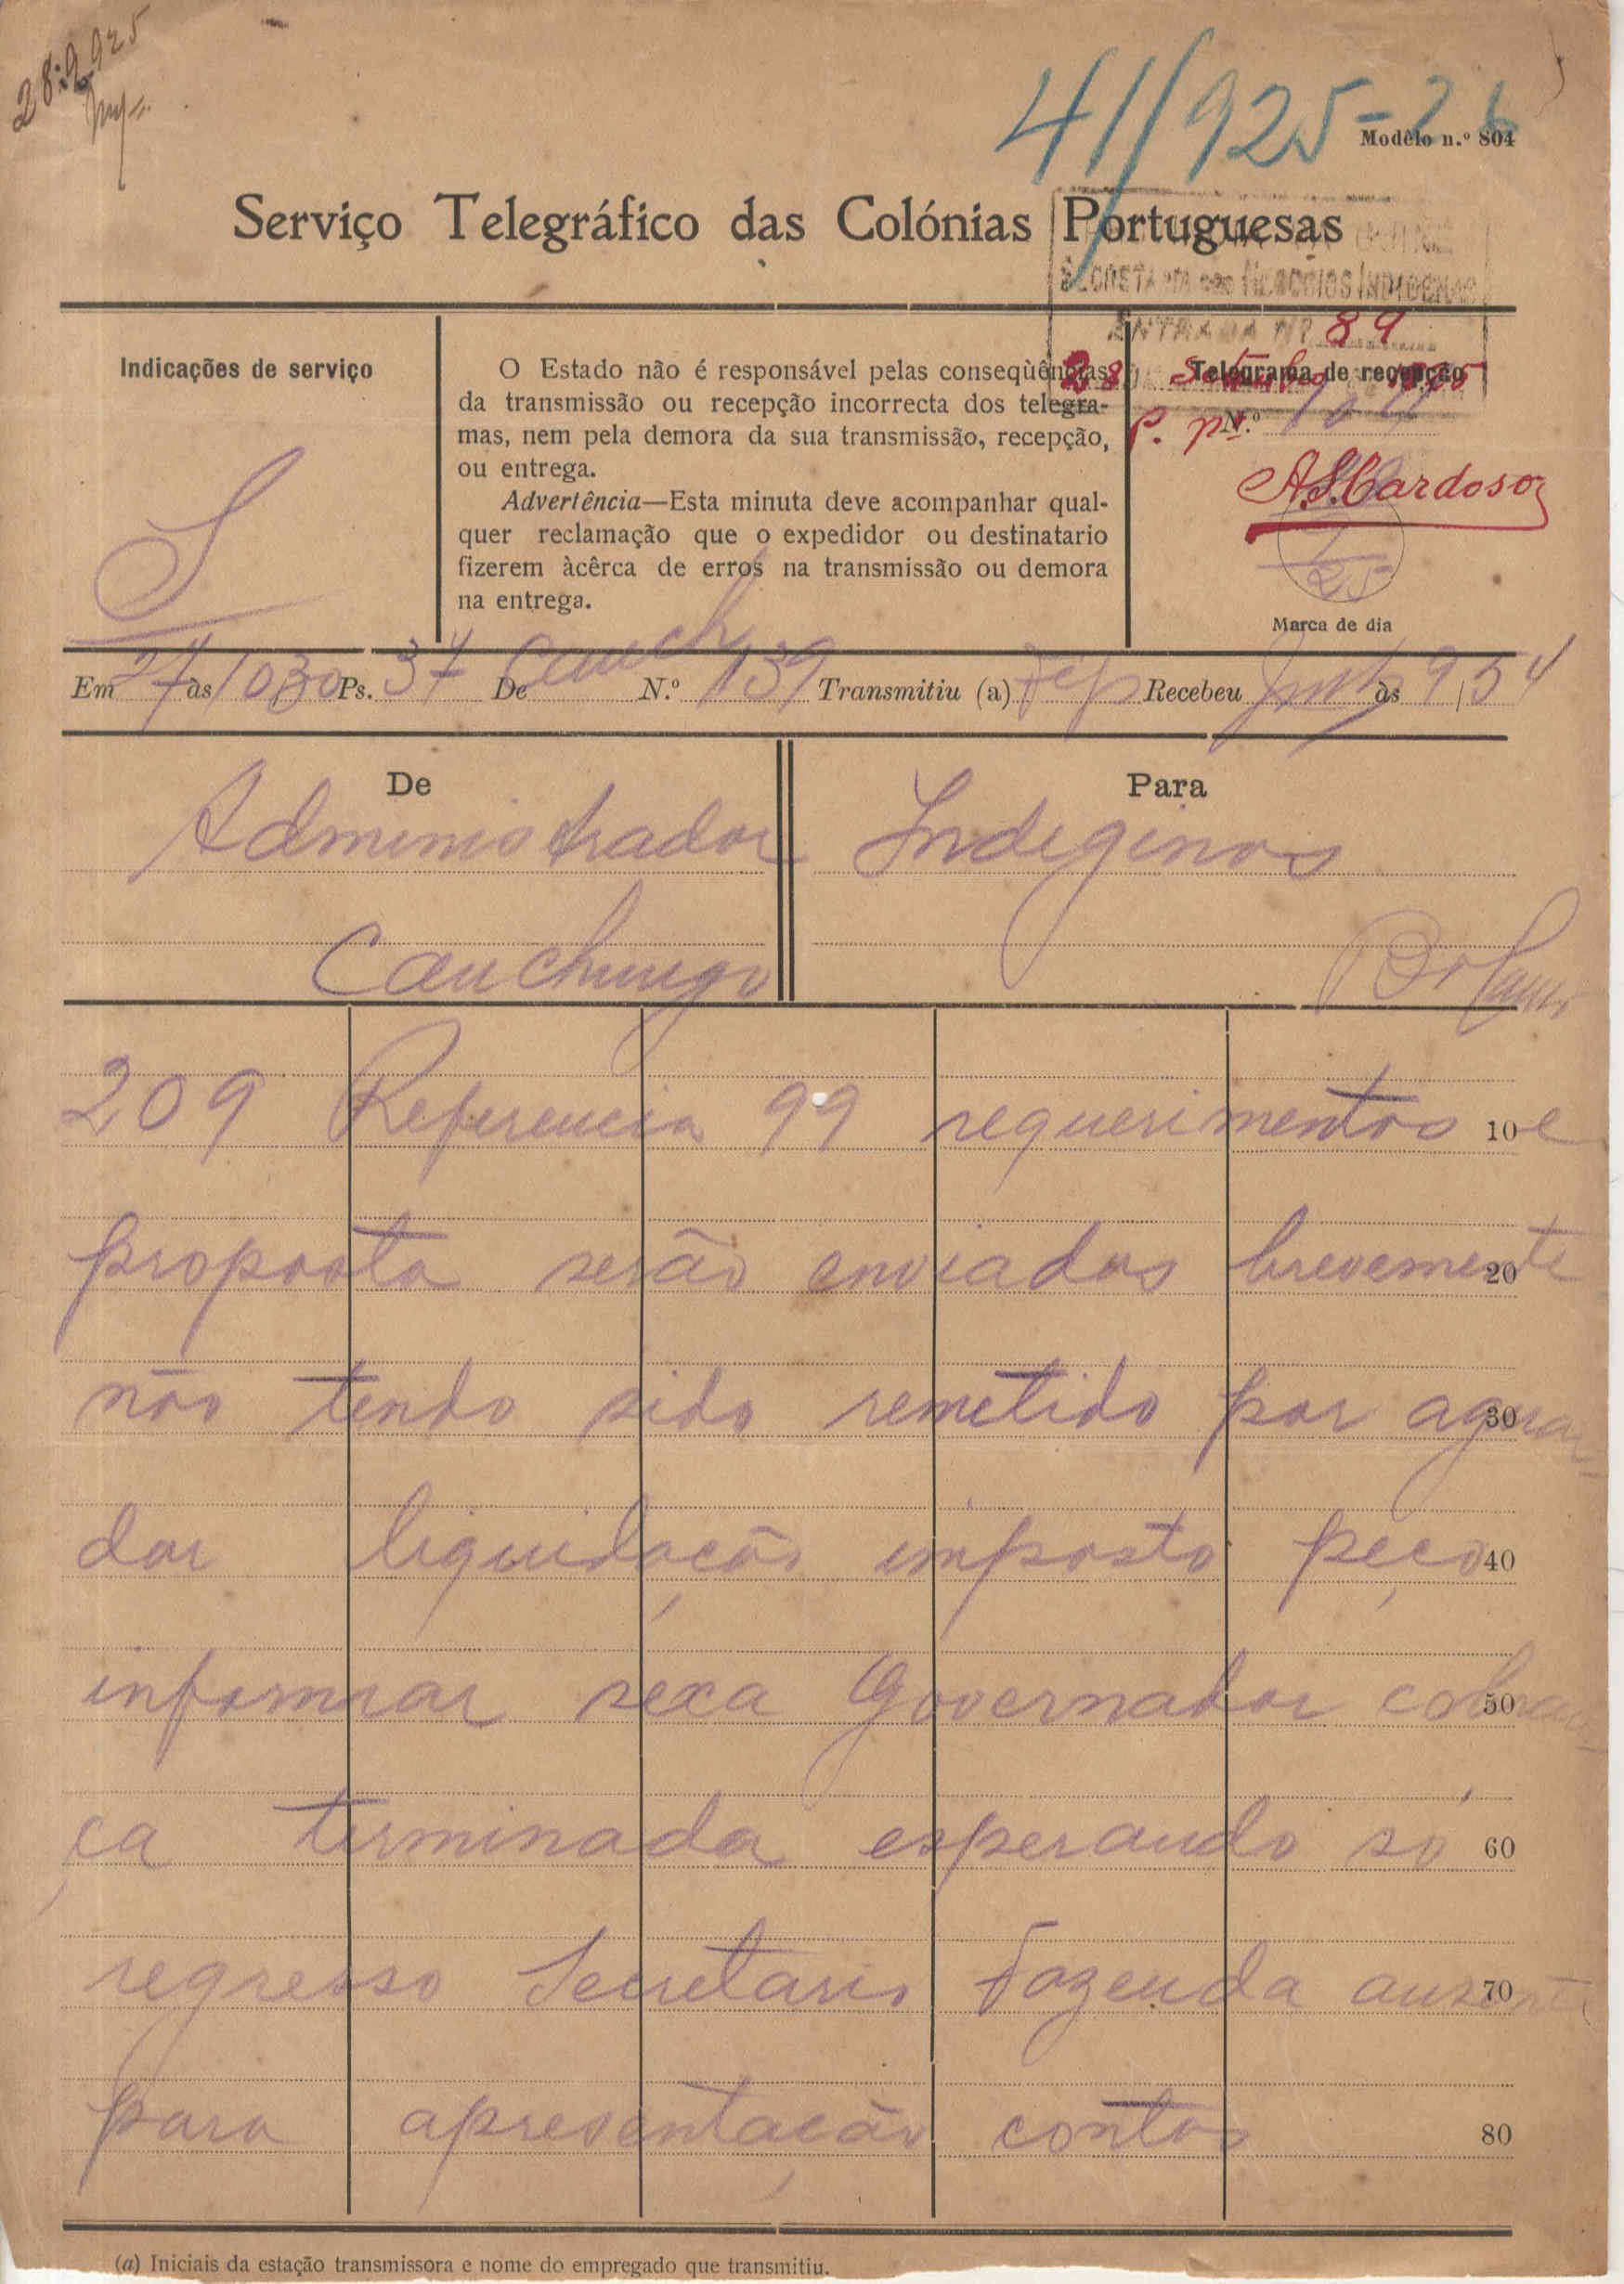 28:9 925
41/925-26
Modêlo n.º 804
Serviço Telegráfico das Colónias Portuguesas
SECRETARIA DOS NEGOCIOS INDIGENAS
ENTRADA Nº 89
28 Setembro 1925
Indicações de serviço
S
O Estado não é responsável pelas conseqùências
da transmissão ou recepção incorrecta dos telegra-
mas, nem pela demora da sua transmissão, recepção,
ou entrega.
Advertência—Esta minuta deve acompanhar qual-
quer reclamação que o expedidor ou destinatario
fizerem àcêrca de erros na transmissão ou demora
na entrega.
Telegrama de recepção
P. pt N.º
A.S.Cardoso
25
Marca de dia
Em 27 às 1030 Ps. 37 De Cauch N.º 139 Transmitiu (a) Recebeu às 9,54
De
Para
Administrador
Indeginos
Cauchungo
Bolama
209 Referencia 99 requerimentos 10 e
proposta serão enviados brevemente 20
não tendo sido remetido por aguar- 30
dar liquidação imposto peço 40
informar sexa Governador cobran- 50
ça terminada esperando só 60
regresso Secretario Fazenda ausente 70
para apresentação contas 80
(a) Iniciais da estação transmissora e nome do empregado que transmitiu.